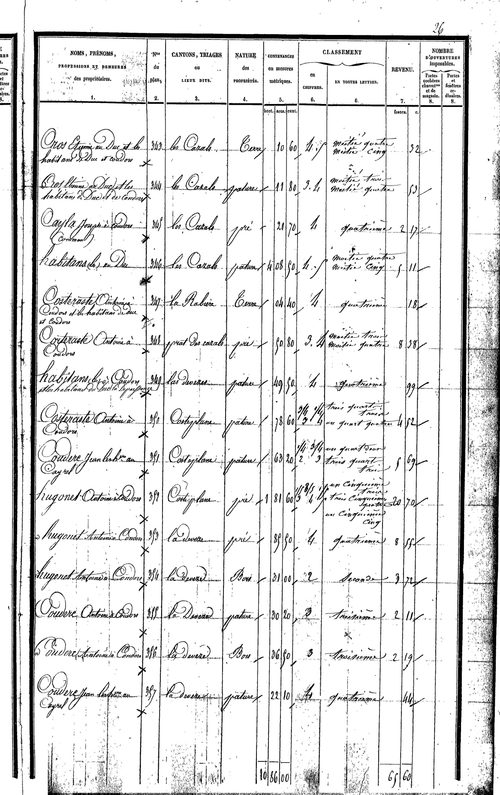 26
NOMS, PRÉNOMS, PROFESSIONS ET DEMEURES des propriétaires. 1.
Nos du plan. 2.
CANTONS, TRIAGES ou LIEUX DITS. 3.
NATURE des PROPRIÉTÉS. 4.
CONTENANCES en mesures métriques. 5.
CLASSEMENT
en CHIFFRES. 6.
EN TOUTES LETTRES. 6.
REVENU. 7.
NOMBRE D'OUVERTURES imposables.
Portes cochères charret.res et de magasin. 8.
Portes et fenêtres ordinaires. 8.
hect. ares. cent. francs. c.
343 les Cazals Terre 10 60 4. 5 moitié quatre moitié cinq 32
344 les Cazals pature 11 80 3. 4 moitié trois moitié quatre 53
Cayla Joseph à Coudors 345 les Cazals pré 21 70 4 quatrième 2 17
habitans de Duc 346 les Cazals pature 4 08 50 4. 5 moitié quatre moitié cinq 5 11
Costeraste Antoine à Coudors et les habitans de Duc et Coudors 347 Terre 04 40 4 quatrième 18
Costeraste Antoine à Coudors 348 prat des cazals pré 50 80 3. 4 moitié trois moitié quatre 8 38
habitans de Coudors 349 las deveses pature 49 50 4 quatrième 99
Costeraste Antoine à Coudors 350 Costeplane pature 78 60 3/4 1/4 3 4 trois quart trois un quart quatre 4 52
Coudere Jean à Cayrel 351 Costeplane pature 63 20 1/4 3/4 2 3 un quart deux trois quart trois 5 69
hugonet Antoine à Coudors 352 Costeplane pré 1 81 60 un cinquième trois trois cinquièmes quatre un cinquième cinq 20 70
hugonet Antoine à Coudors 353 la devese pré 85 50 4 quatrième 8 55
hugonet Antoine à Coudors 354 la devese Bois 31 00 2 seconde 3 72
Coudere Antoine à Coudors 355 la devese pature 30 20 3 troisième 2 11
Coudere Antoine à Coudors 356 la devese Bois 36 50 3 troisième 2 19
Coudere Jean à Cayrel 357 la devese pature 22 10 4 quatrième 44
10 86 00 65 60